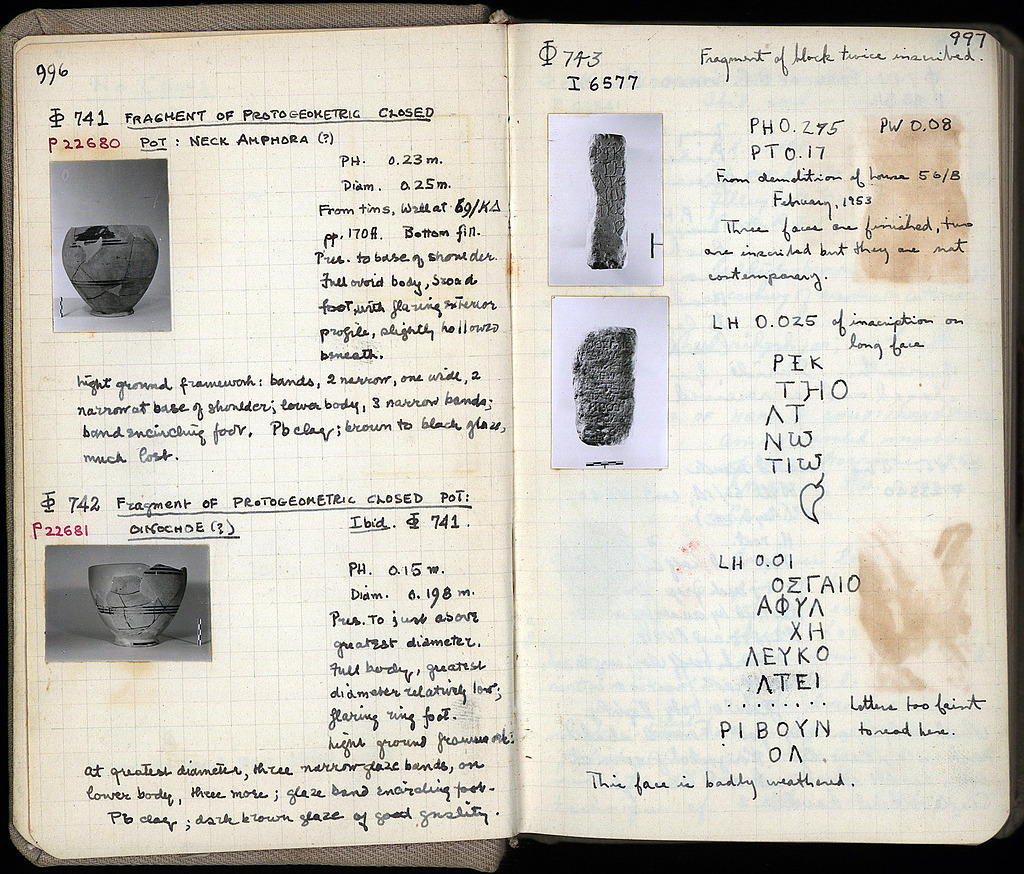 996
Φ 741 FRAGMENT OF PROTOGEOMETRIC CLOSED
P 22680 POT : NECK AMPHORA (?)
PH. 0.23 m.
Diam. 0.25 m.
From tins, Well at 69/ΚΔ
pp. 170 ff. Bottom fill.
Pres. to base of shoulder.
Full ovoid body, broad
foot, with flaring exterior
profile, slightly hollowed
beneath.
Light ground framework: bands, 2 narrow, one wide, 2
narrow at base of shoulder; lower body, 3 narrow bands;
band encircling foot. Pb clay; brown to black glaze,
much lost.
Φ 742 Fragment OF PROTOGEOMETRIC CLOSED POT:
P22681 OINOCHOE (?) Ibid. Φ 741.
PH. 0.15 m.
Diam. 0.198 m.
Pres. To just above
greatest diameter.
Full body, greatest
diameter relatively low;
flaring ring foot.
Light ground framework:
at greatest diameter, three narrow glaze bands, on
lower body, three more; glaze band encircling foot.
Pb clay; dark brown glaze of good quality.
997
Φ 743 Fragment of block twice inscribed.
I 6577
PH 0.275 PW 0.08
PT 0.17
From demolition of house 56/B
February, 1953
Three faces are finished, two
are inscribed but they are not
contemporary.
LH 0.025 of inscription on
long face
ΡΕΚ
ΤΗΟ
ΛΤ
ΝѠ
ΤΙѠ
LH 0.01
ΟΣΓΑΙΟ
ΑΦΥΛ
ΧΗ
ΛΕΥΚΟ
ΛΤΕΙ
....... Letters too faint
ΡΙΒΟΥΝ to read here.
ΟΛ
This face is badly weathered.